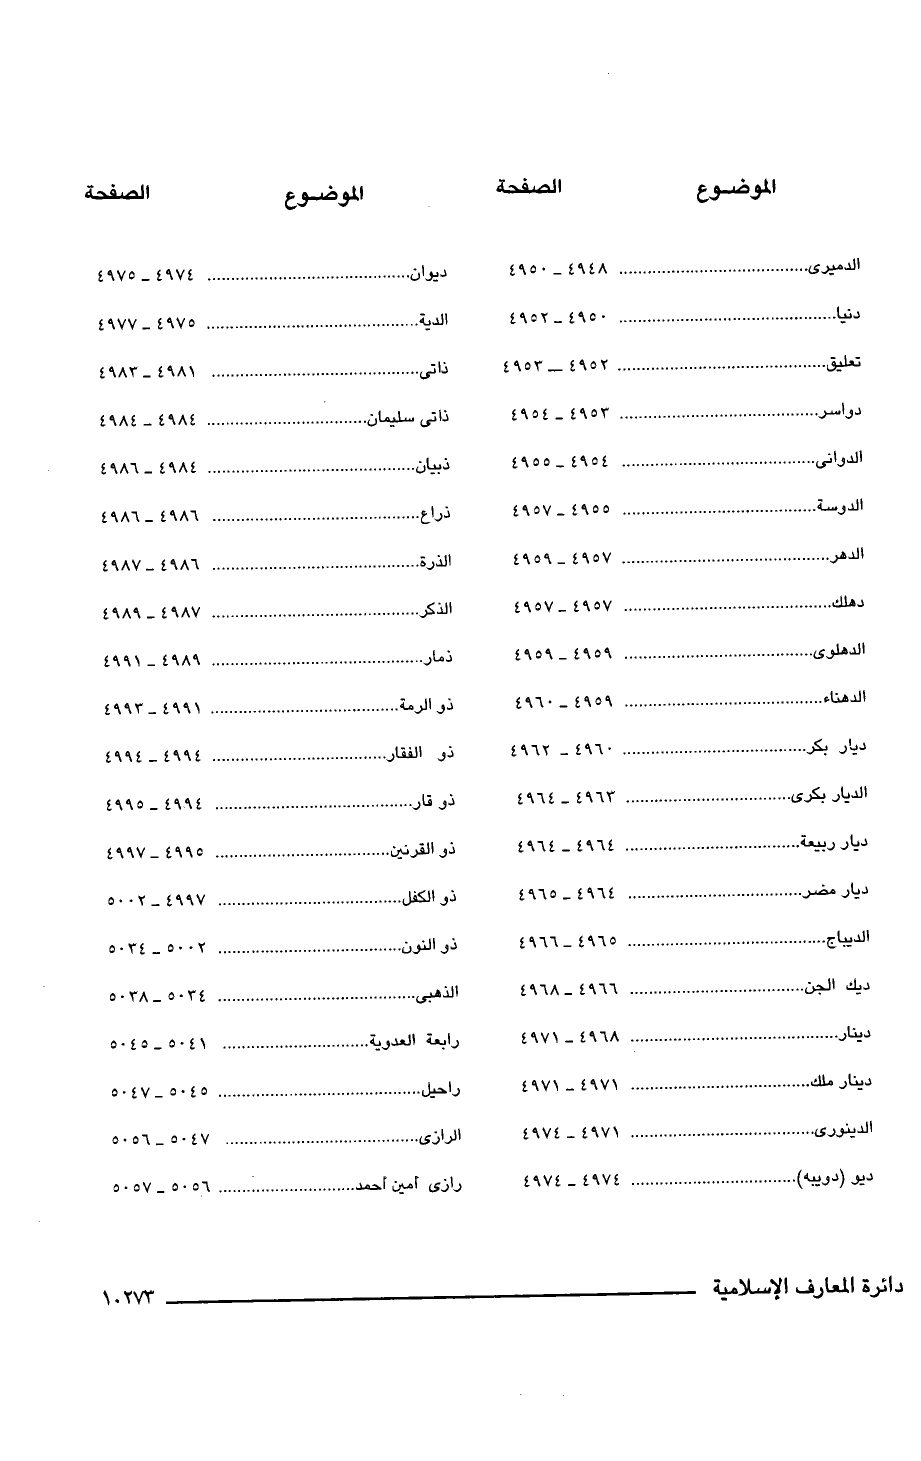 الموضـوع الصفحة
الدميرى ٤٩٤٨ ـ ٤٩٥٠
دنيا ٤٩٥٠ ـ ٤٩٥٢
تعليق ٤٩٥٢ ـ ٤٩٥٣
دواسر ٤٩٥٣ ـ ٤٩٥٤
الدوانى ٤٩٥٤ ـ ٤٩٥٥
الدوسة ٤٩٥٥ ـ ٤٩٥٧
الدهر ٤٩٥٧ ـ ٤٩٥٩
دهلك ٤٩٥٧ ـ ٤٩٥٧
الدهلوى ٤٩٥٩ ـ ٤٩٥٩
الدهناء ٤٩٥٩ ـ ٤٩٦٠
ديار بكر ٤٩٦٠ ـ ٤٩٦٢
الديار بكرى ٤٩٦٣ ـ ٤٩٦٤
ديار ربيعة ٤٩٦٤ ـ ٤٩٦٤
ديار مضر ٤٩٦٤ ـ ٤٩٦٥
الديباج ٤٩٦٥ ـ ٤٩٦٦
ديك الجن ٤٩٦٦ ـ ٤٩٦٨
دينار ٤٩٦٨ ـ ٤٩٧١
دينار ملك ٤٩٧١ ـ ٤٩٧١
الدينورى ٤٩٧١ ـ ٤٩٧٤
ديو (دويبه) ٤٩٧٤ ـ ٤٩٧٤
الموضـوع الصفحة
ديوان ٤٩٧٤ ـ ٤٩٧٥
الدية ٤٩٧٥ ـ ٤٩٧٧
ذاتى ٤٩٨١ ـ ٤٩٨٣
ذاتى سليمان ٤٩٨٤ ـ ٤٩٨٤
ذبيان ٤٩٨٤ ـ ٤٩٨٦
ذراع ٤٩٨٦ ـ ٤٩٨٦
الذرة ٤٩٨٦ ـ ٤٩٨٧
الذكر ٤٩٨٧ ـ ٤٩٨٩
ذمار ٤٩٨٩ ـ ٤٩٩١
ذو الرمة ٤٩٩١ ـ ٤٩٩٣
ذو الفقار ٤٩٩٤ ـ ٤٩٩٤
ذو قار ٤٩٩٤ ـ ٤٩٩٥
ذو القرنين ٤٩٩٥ ـ ٤٩٩٧
ذو الكفل ٤٩٩٧ ـ ٥٠٠٢
ذو النون ٥٠٠٢ ـ ٥٠٣٤
الذهبى ٥٠٣٤ ـ ٥٠٣٨
رابعة العدوية ٥٠٤١ ـ ٥٠٤٥
راحيل ٥٠٤٥ ـ ٥٠٤٧
الرازى ٥٠٤٧ ـ ٥٠٥٦
رازى أمين أحمد ٥٠٥٦ ـ ٥٠٥٧
دائرة المعارف الإسلامية ١٠٢٧٣